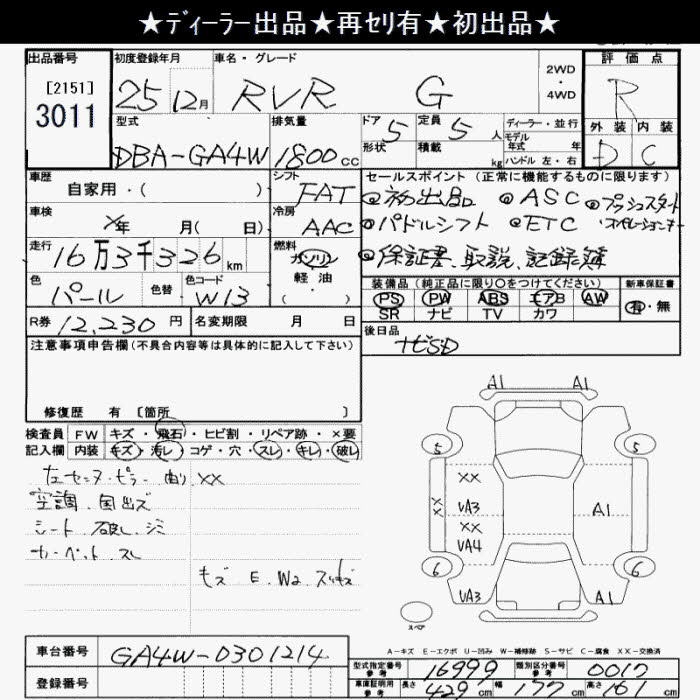 ★ディーラー出品★再セリ有★初出品★
出品番号 初度登録年月 車名・グレード 評価点
[2151] 3011 25年12月 RVR G 2WD・4WD R
型式 排気量 ドア 定員 ディーラー・並行 外装 内装
形状 5 積載 5人 モデル年式 年 D C
DBA-GA4W 1800cc kg ハンドル 左・右
車歴 シフト セールスポイント (正常に機能するものに限ります)
自家用・( ) FAT ◎初出品 ◎ASC ◎プッシュスタート
車検 冷房
×年 月( 日) AAC ◎パドルシフト ◎ETC
走行 燃料
16万3千326km ガソリン ◎保証書、取説、記録簿
色 色替 色コード 軽油 装備品 (純正品に限り〇をつけてください) 新車保証書
パール W13 ・( ) PS PW ABS エアB AW 有・無
SR ナビ TV カワ
R券 12,230円 名変期限 月 日 後日品
ナビSD
注意事項申告欄 (不具合内容等は具体的に記入して下さい)
修復歴 有 〔箇所 〕
検査員 FW キズ・飛石・ヒビ割・リペア跡・×要
記入欄 内装 キズ・汚レ・コゲ・穴・スレ・キレ・破レ
左センターピラー 曲り XX
空調
シート 破レ シミ
カーペット スレ
キズ E Wa スリキズ
A1 A1
5 5
XX
XX VA3 A1
XX
VA4
6 6
VA3 A1
スペア
A-キズ E-エクボ U-凹み W-補修跡 S-サビ C-腐食 XX-交換済
車台番号 GA4W-0301214
型式指定番号 参考 16999 類別区分番号 参考 0017
登録番号 車庫証明用 参考 長さ 429cm 幅 177cm 高さ 161cm